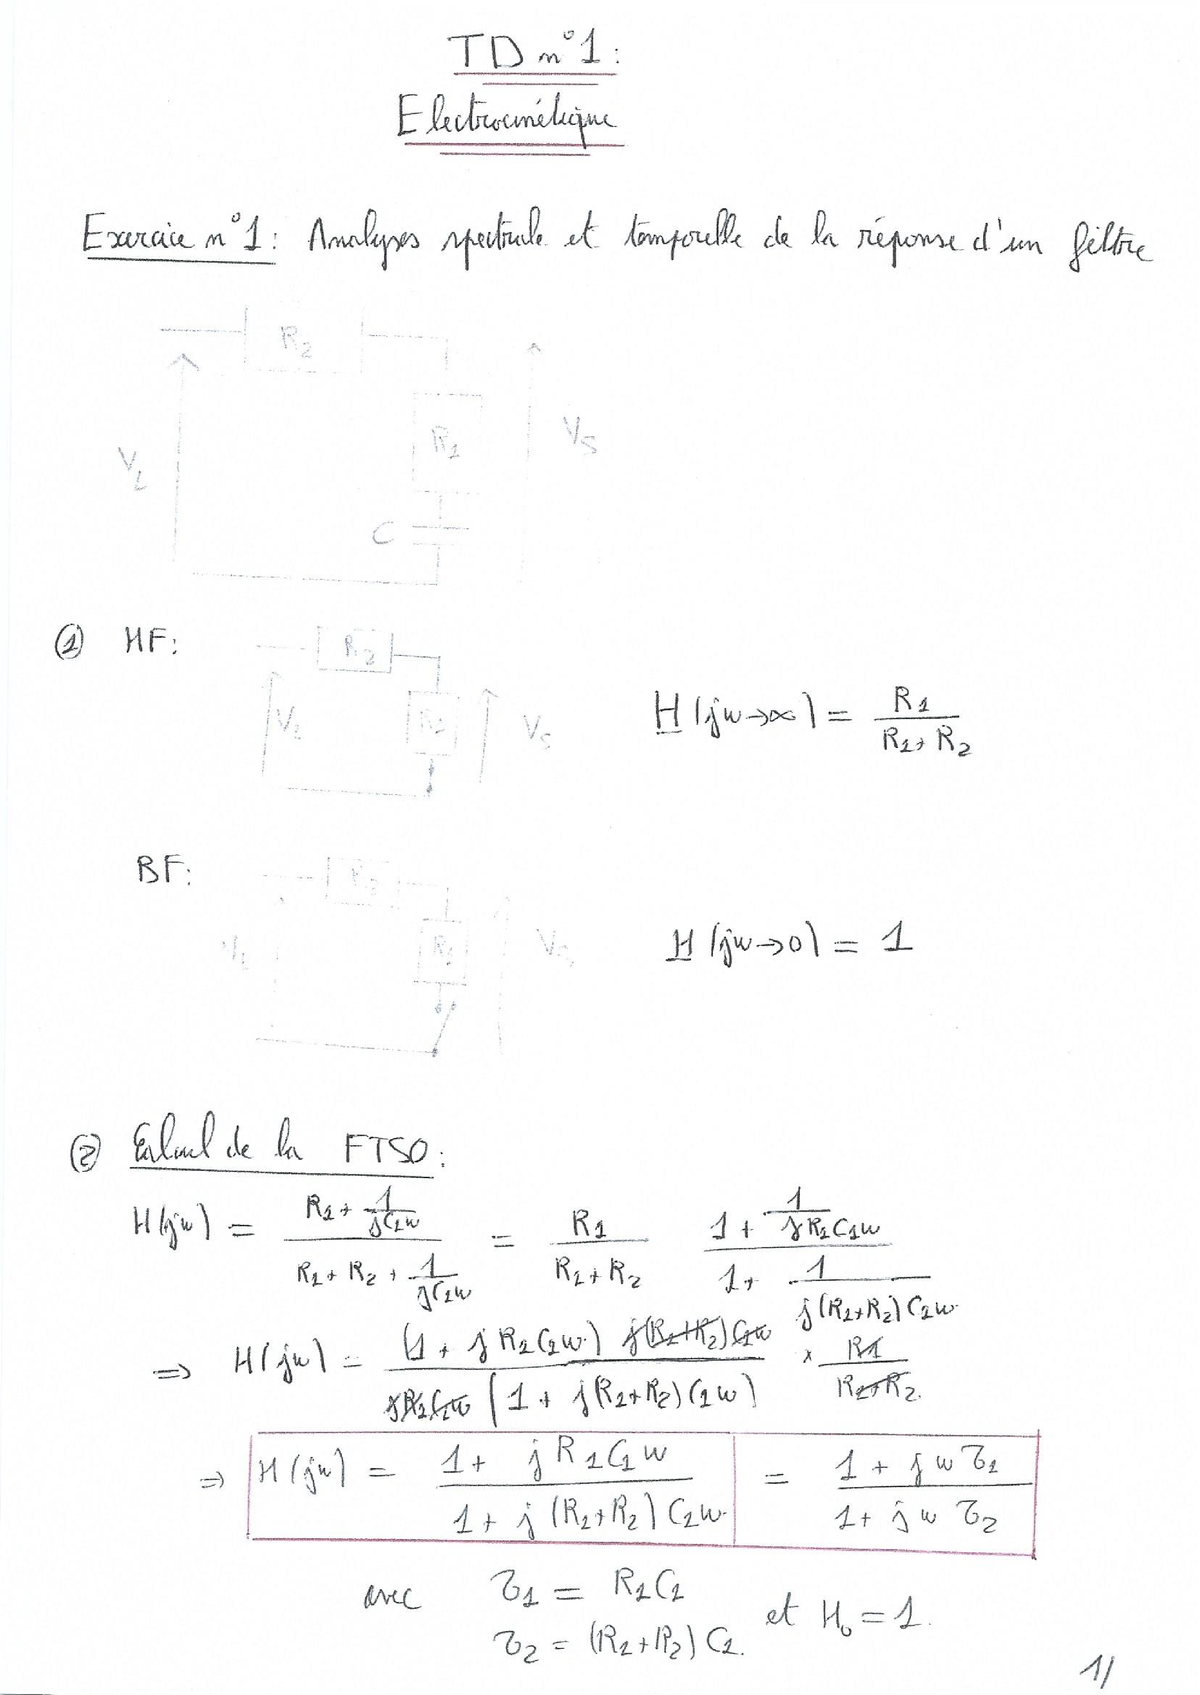 TD n°1:
Electrocinétique
Exercice n°1: Analyses spectrale et temporelle de la réponse d'un filtre
R2
R1
VS
C
① HF:
R2
R1
VS
H(jw→∞) = R1 / (R1+R2)
BF:
R1
H(jw→0) = 1
② Calcul de la FTSO:
H(jw) = (R1 + 1/(jC1w)) / (R1 + R2 + 1/(jC1w)) = R1/(R1+R2) (1 + 1/(jR1C1w)) / (1 + 1/(j(R1+R2)C1w))
⇒ H(jw) = (1 + jR1C1w) j(R1+R2)C1w / (jR1C1w (1 + j(R1+R2)C1w)) × R1/(R1+R2)
⇒ H(jw) = (1 + jR1C1w) / (1 + j(R1+R2)C1w) = (1 + jwτ1) / (1 + jwτ2)
avec τ1 = R1C1 et H0 = 1.
τ2 = (R1+R2)C1.
1/